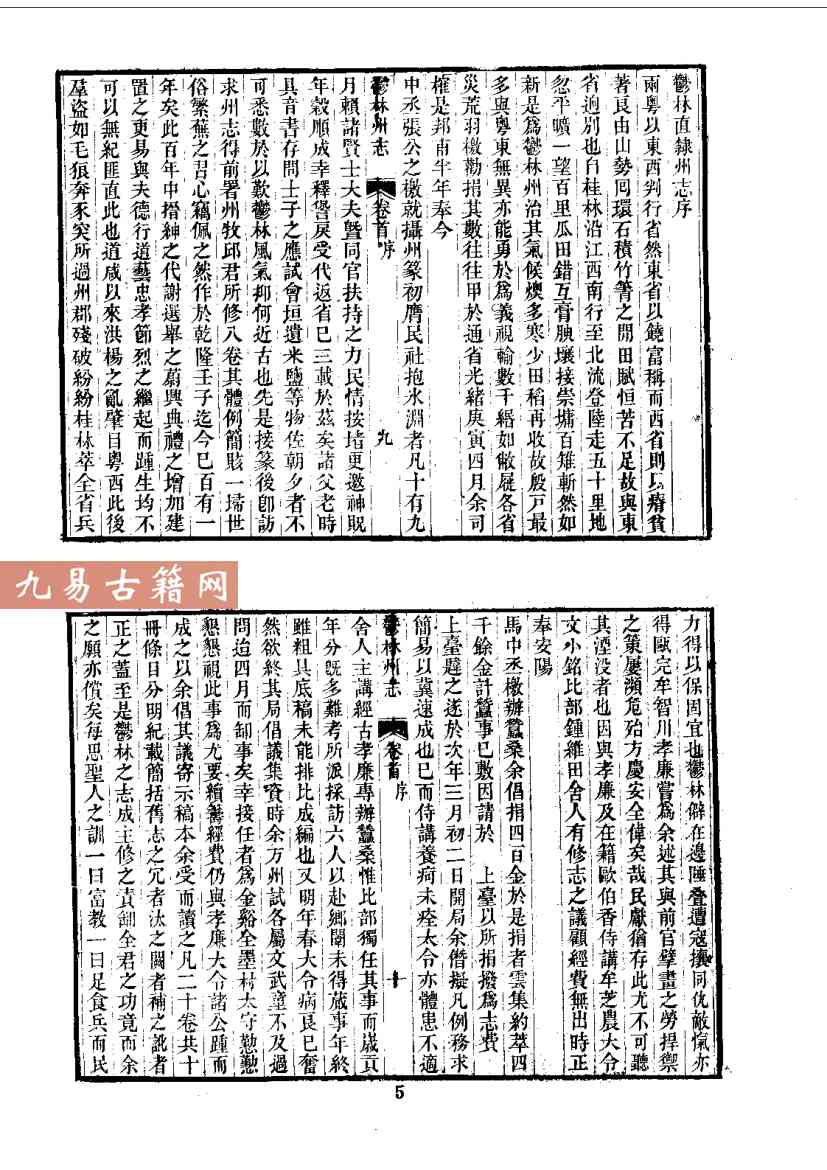 鬱林直隸州志序
兩粵以東西判行省然東省以饒富稱而西省則以瘠貧
著良由山勢囘環石積竹箐之閒田賦恒苦不足故與東
省迥別也自桂林沿江西南行至北流登陸走五十里地
忽平曠一望百里瓜田錯互膏腴壤接崇墉百雉斬然如
新是爲鬱林州治其氣候燠多寒少田稻再收故殷戸最
多與粵東無異亦能勇於爲義視輸數千緡如敝屣各省
災荒羽檄勸捐其數往往甲於通省光緒庚寅四月余司
榷是邦甫半年奉今
中丞張公之檄就攝州篆初膺民社抱氷淵者凡十有九
鬱林州志 卷首 序 九
月賴諸賢士大夫曁同官扶持之力民情按堵更邀神貺
年穀順成幸釋諐戾受代返省已三載於茲矣諸父老時
具音書存問士子之應試會垣遺來鹽等物佐朝夕者不
可悉數於以歎鬱林風氣抑何近古也先是接篆後卽訪
求州志得前署州牧邱君所修八卷其體例簡賅一埽世
俗繁蕪之習心竊佩之然作於乾隆壬子迄今已百有一
年矣此百年中搢紳之代謝選舉之蔚興典禮之增加建
置之更易與夫德行道藝忠孝節烈之繼起而踵生均不
可以無紀匪直此也道咸以來洪楊之亂肇自粵西此後
羣盜如毛狼奔豕突所過州郡殘破紛紛桂林萃全省兵
力得以保固宜也鬱林僻在邊陲叠遭寇攘同仇敵愾亦
得歐完牟智川孝廉嘗爲余述其與前官擘畫之勞捍禦
之策屢瀕危殆方慶安全偉矣哉民獻猶存此尤不可聽
其湮没者也因與孝廉及在籍歐伯香侍講牟芝農大令
文小銘比部鍾維田舍人有修志之議顧經費無出時正
奉安陽
馬中丞檄辦蠶桑余倡捐四百金於是捐者雲集約萃四
千餘金計蠶事已敷因請於 上臺以所捐撥爲志費
上臺韙之遂於次年三月初二日開局余僭擬凡例務求
簡易以冀速成也已而侍講養疴未痊太令亦體患不適
鬱林州志 卷首 序 十
舍人主講經古孝廉專辦蠶桑惟比部獨任其事而歲貢
年分旣多難考所派採訪六人以赴鄉闈未得蕆事年終
雖粗具底稿未能排比成編也又明年春大令病良已奮
然欲終其局倡議集貲時余方州試各屬文武童不及過
問迨四月而卸事矣幸接任者爲金谿全墨村太守勤勤
懇懇視此事爲尤要續籌經費仍與孝廉大令諸公踵而
成之以余倡其議寄示稿本余受而讀之凡二十卷共十
冊條目分明紀載簡括舊志之冗者汰之闕者補之訛者
正之蓋至是鬱林之志成主修之責卸全君之功竟而余
之願亦償矣每思聖人之訓一曰富教一曰足食兵而民
九易古籍网
5